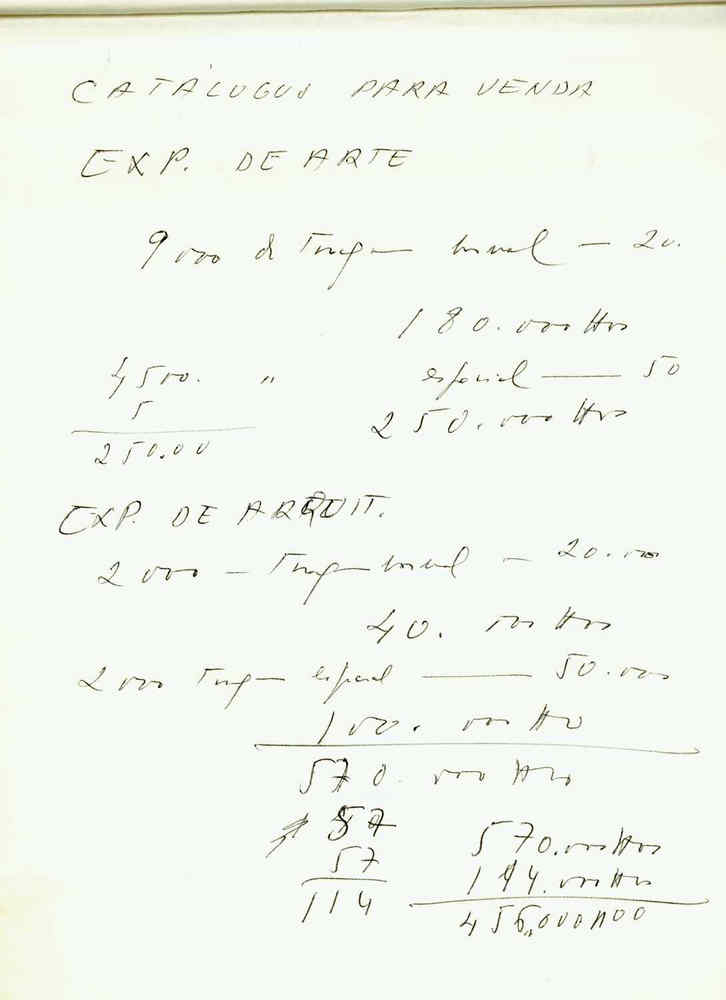 CATÁLOGOS PARA VENDA
EXP. DE ARTE
9000 de Tiragem normal — 20.
180.000
4500. " especial — 50
5
250.000
250.00
EXP. DE ARQUIT.
2000 — Tiragem normal — 20.000
40. 000
2000 Tiragem especial — 50.000
100. 000
570. 000
57
57
114
570.000
114.000
456,000